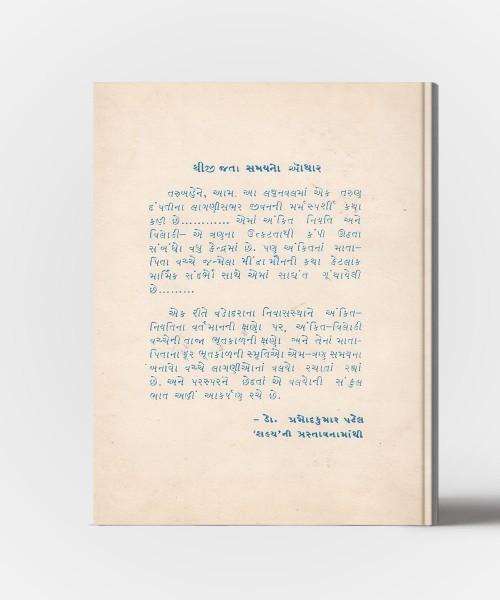 થીજી જતા સમયનો ઓથાર
તરુબહેને, આમ. આ લઘુનવલમાં એક તરુણ
દંપતીના લાગણીસભર જીવનની મર્મસ્પર્શી કથા
કહી છે............ એમાં અંકિત નિયતિ અને
બિલાડી– એ ત્રણના ઉત્કટતાથી કંપી ઊઠતા
સંબંધો વધુ કેન્દ્રમાં છે. પણ અંકિતનાં માતા–
પિતા વચ્ચે જન્મેલા મીંઢા મૌનની કથા કેટલાક
માર્મિક સંદર્ભો સાથે એમાં સાદ્યંત ગૂંથાયેલી
છે.........
એક રીતે વડોદરાના નિવાસસ્થાને અંકિત–
નિયતિના વર્તમાનની ક્ષણો પર, અંકિત–બિલાડી
વચ્ચેની તાજા ભૂતકાળની ક્ષણો અને તેનાં માતા–
પિતાના દૂર ભૂતકાળની સ્મૃતિઓ એમ–ત્રણ સમયના
બનાવો વચ્ચે લાગણીઓનાં વલયો રચાતાં રહ્યાં
છે. અને પરસ્પરને છેદતાં એ વલયોની સંકુલ
ભાત અહીં આકર્ષણ રચે છે.
– ડૉ. પ્રમોદકુમાર પટેલ
ની પ્રસ્તાવનામાંથી